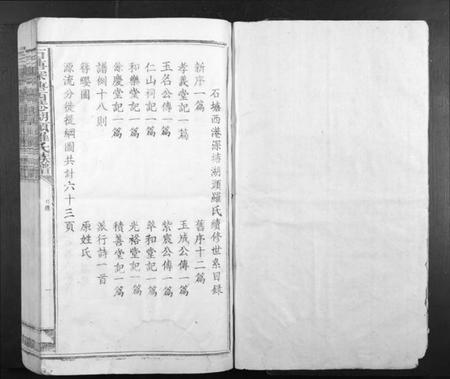 石塘西港深塘湖頭羅氏續修世系目録
新序一篇 舊序十二篇
孝義堂記一篇 玉成公傳一篇
玉名公傳一篇 紫宸公傳一篇
仁山祠記一篇 萃和堂記一篇
和樂堂記一篇 光裕堂記一篇
餘慶堂記一篇 積善堂記一篇
譜例十八則 派行詩一首
蔣纓圖 原姓氏
源流分徙提綱圖共計六十三頁
湖頭羅氏族譜